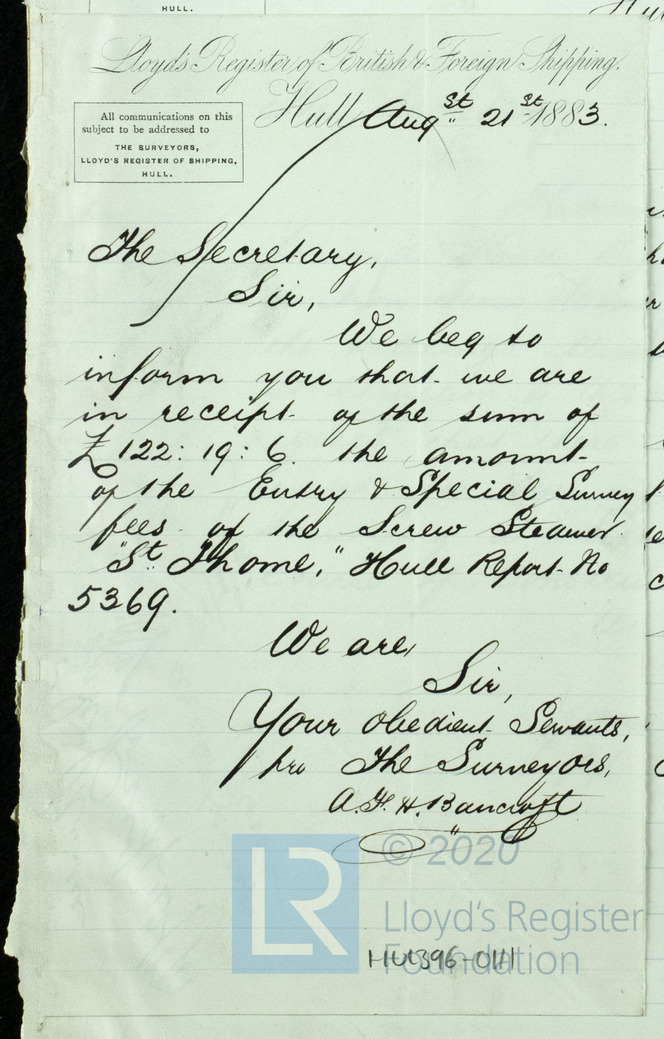 HULL.
Lloyd's Register of British & Foreign Shipping.
Hull Augst 21st 1883.
All communications on this
subject to be addressed to
THE SURVEYORS,
LLOYD'S REGISTER OF SHIPPING,
HULL.
The Secretary,
Sir,
We beg to
inform you that we are
in receipt of the sum of
£122:19:6. the amount
of the Entry & Special Survey
fees of the Screw Steamer
"St Thome," Hull Report No
5369.
We are,
Sir,
Your obedient Servants,
pro The Surveyors,
A.F.H. Bancroft
LR © 2020
Lloyd's Register
Foundation
HUL396-0111